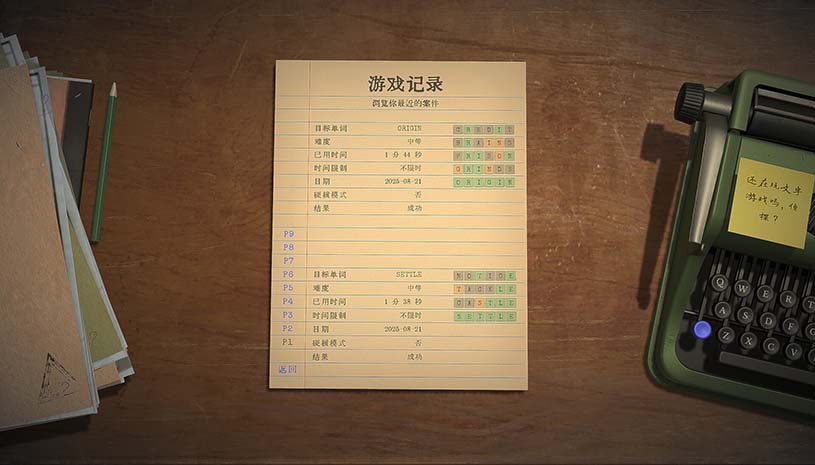 游戏记录
浏览你最近的案件
目标单词 ORIGIN CREDIT
难度 中等 BRAINS
已用时间 1 分 44 秒 PRISON
时间限制 不限时 GRINDS
日期 2025-08-21 ORIGIN
硬核模式 否
结果 成功
P9
P8
P7
P6 目标单词 SETTLE NOTICE
P5 难度 中等 TACKLE
P4 已用时间 1 分 38 秒 CASTLE
P3 时间限制 不限时 SETTLE
P2 日期 2025-08-21
P1 硬核模式 否
结果 成功
返回
还在玩文字
游戏吗，侦
探？
Q W E R T
A S D F
Z X C V